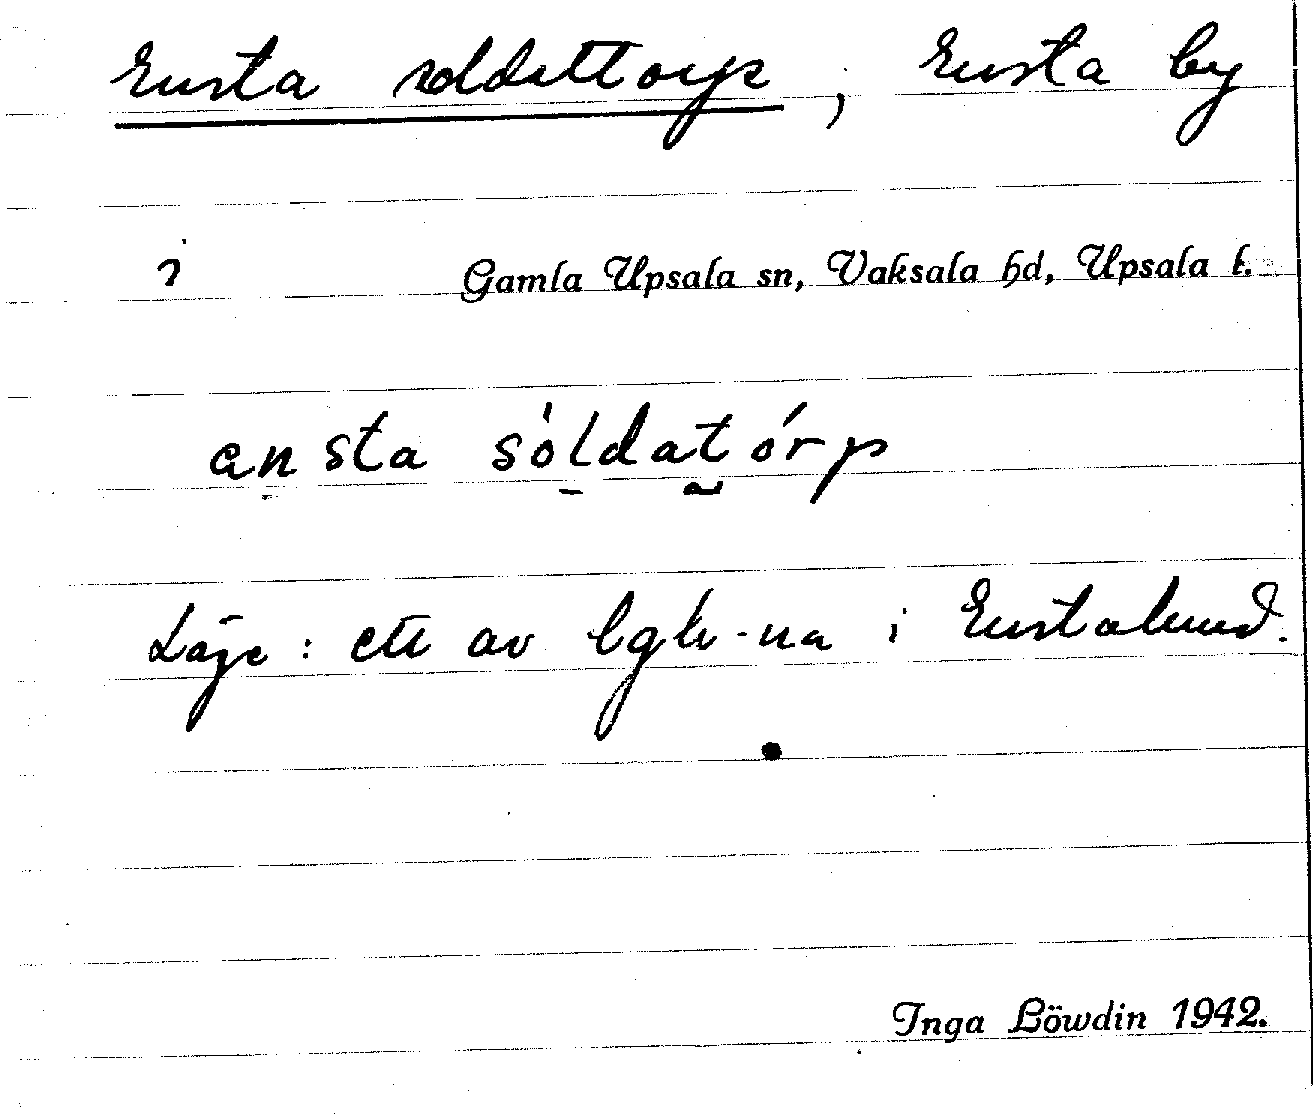 Ensta soldattorp, Ensta by
i Gamla Upsala sn, Vaksala hd, Upsala l.
ænsta sòldatórp
Läge: ett av lgh-na i Enstalund.
Inga Löwdin 1942.